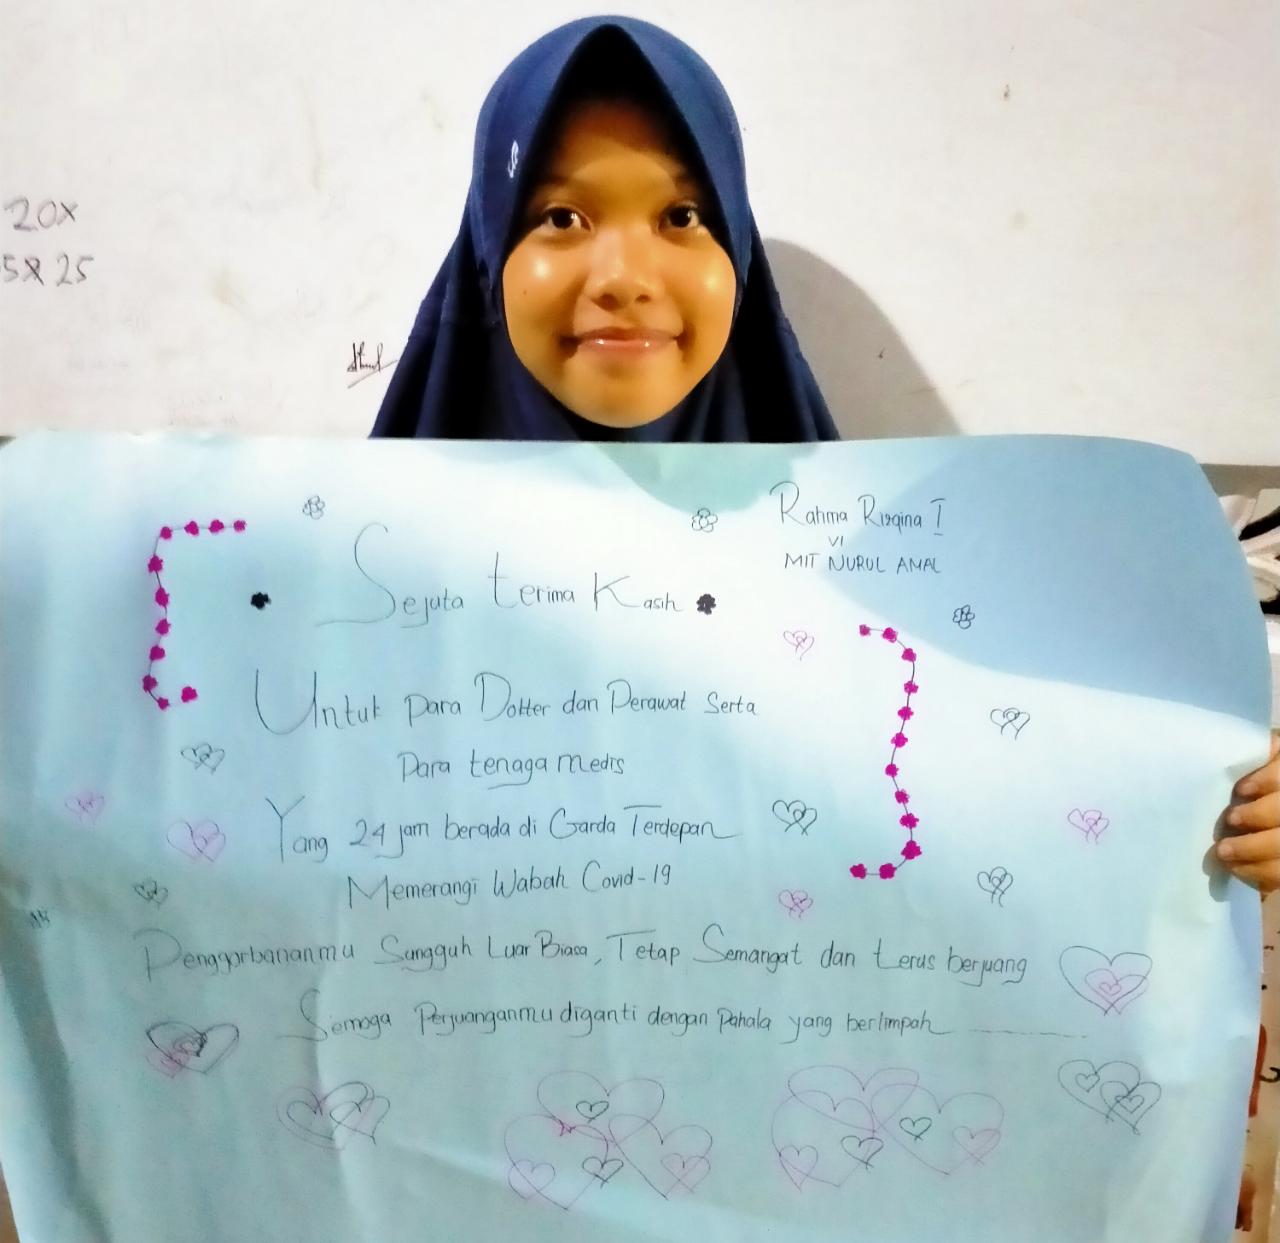 20x
5x 25
Rahma Rizqina I
VI
MIT NURUL AMAL
Sejuta terima Kasih
Untuk para Dokter dan Perawat Serta
Para tenaga medis
Yang 24 jam berada di Garda Terdepan
Memerangi Wabah Covid-19
Pengorbananmu Sungguh Luar Biasa, Tetap Semangat dan terus berjuang
Semoga Perjuanganmu diganti dengan pahala yang berlimpah